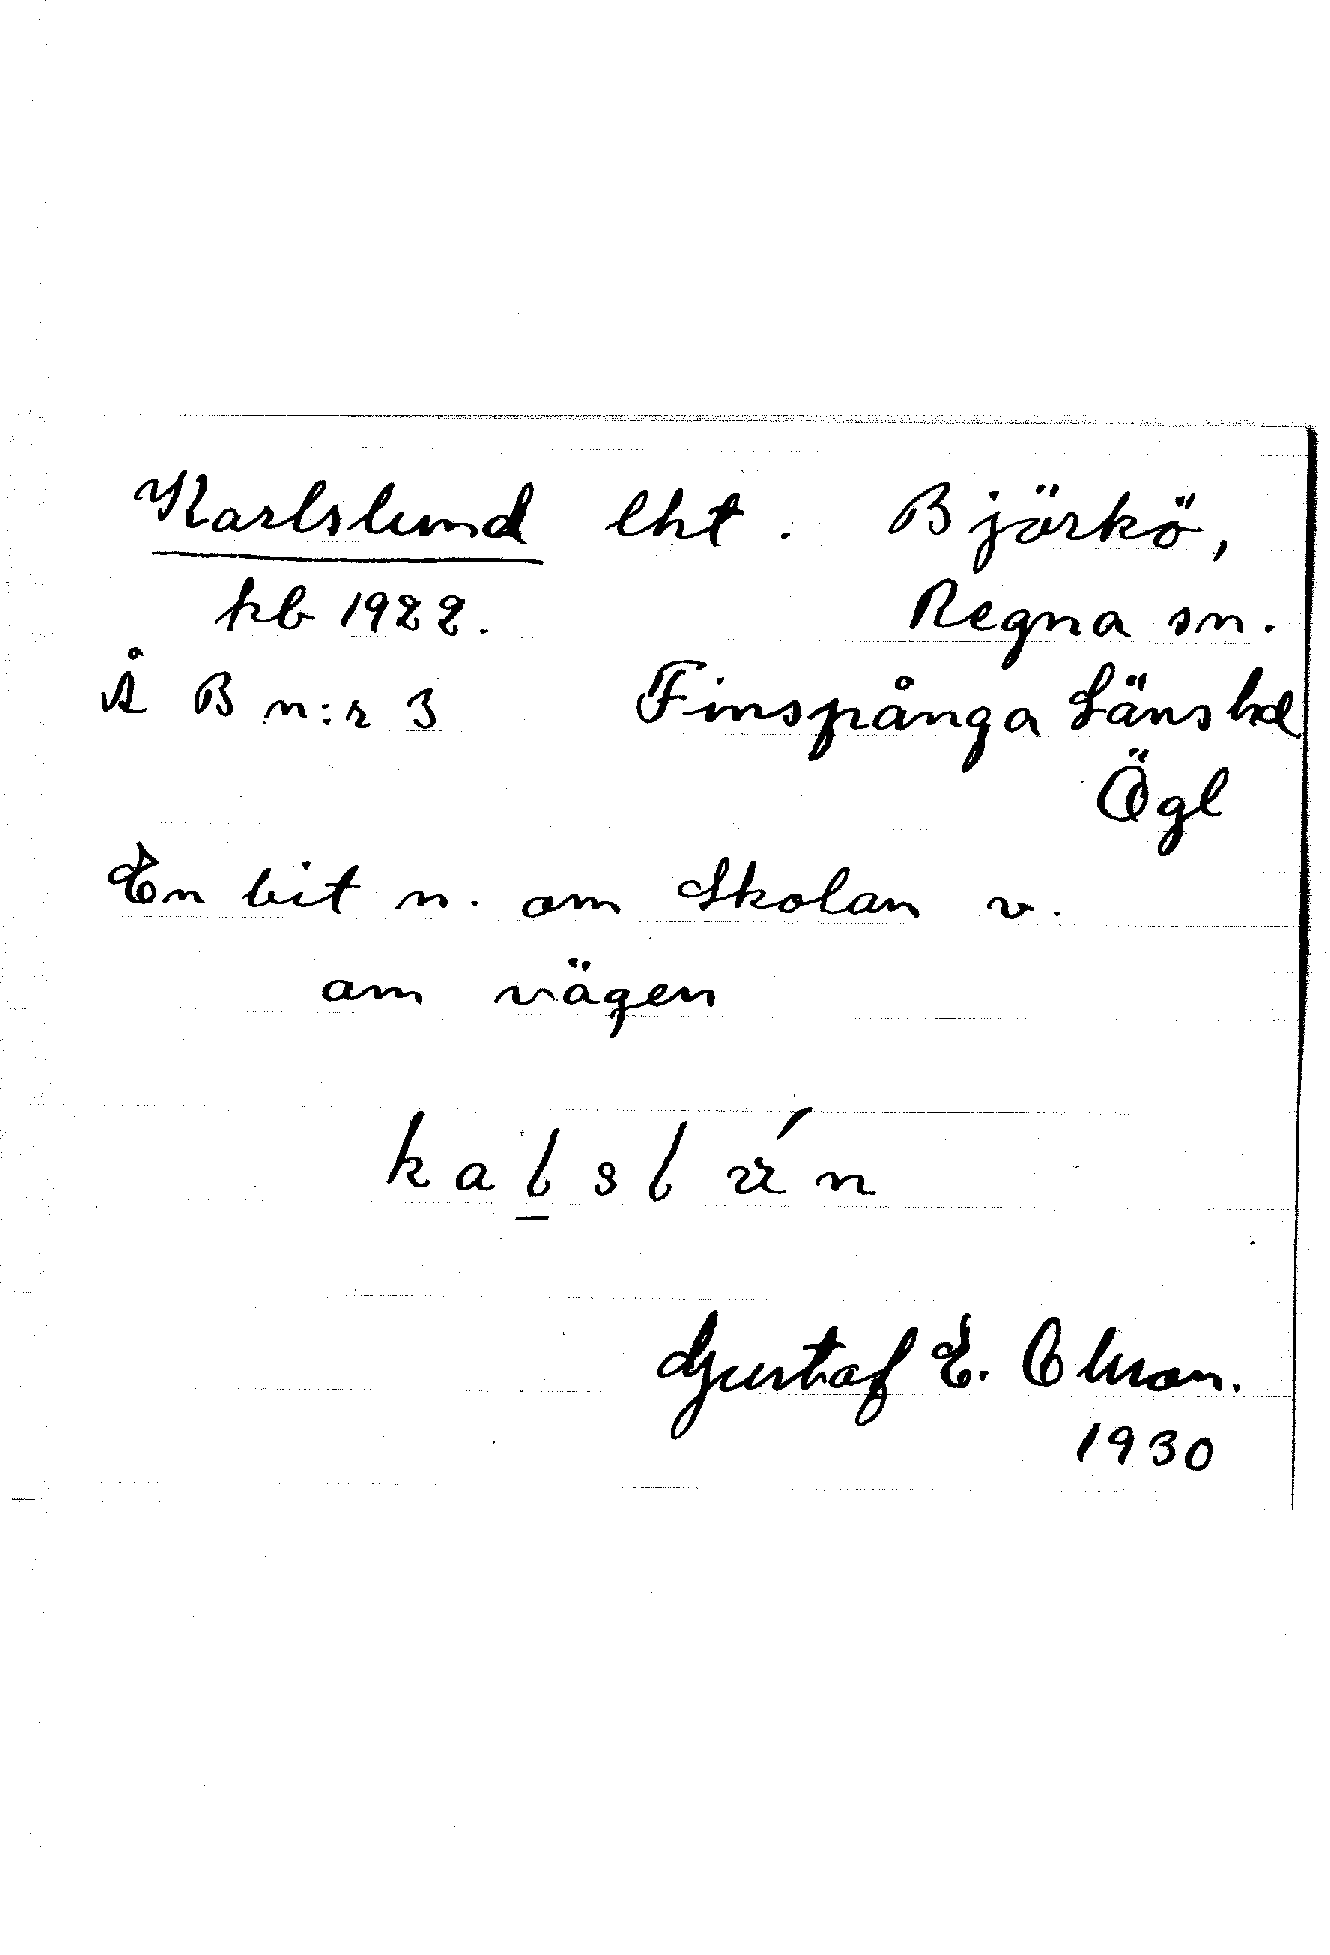 Karlslund lht. Björkö,
kb 1922. Regna sn.
Å B n:r 3 Finspånga Läns hd
Ögl
En bit n. om Skolan v.
om vägen
kalslún
Gustaf E. Olson.
1930